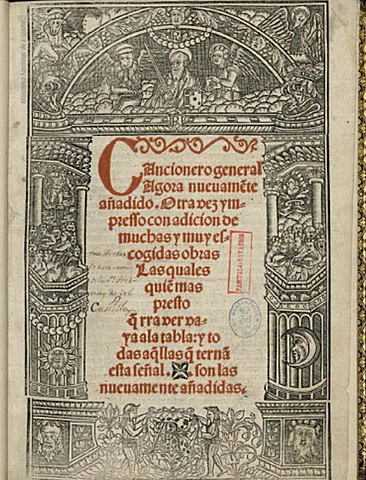 Cancionero general
Agora nueuamẽte
añadido. Otra vez ym-
presso con adicion de
muchas y muy es-
cogidas obras
Las quales
quiẽ mas
presto
q̃rra ver va-
ya ala tabla: y to
das aq̃llas q̃ ternã
esta señal. son las
nueuamente añadidas.